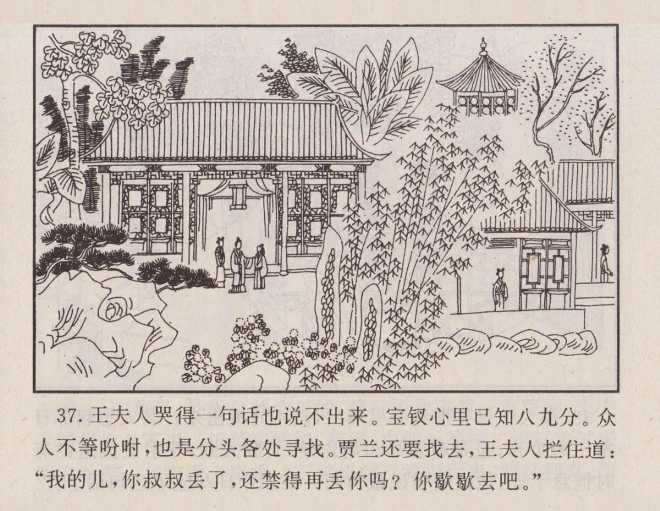 37.王夫人哭得一句话也说不出来。宝钗心里已知八九分。众
人不等吩咐，也是分头各处寻找。贾兰还要找去，王夫人拦住道：
“我的儿，你叔叔丢了，还禁得再丢你吗？你歇歇去吧。”